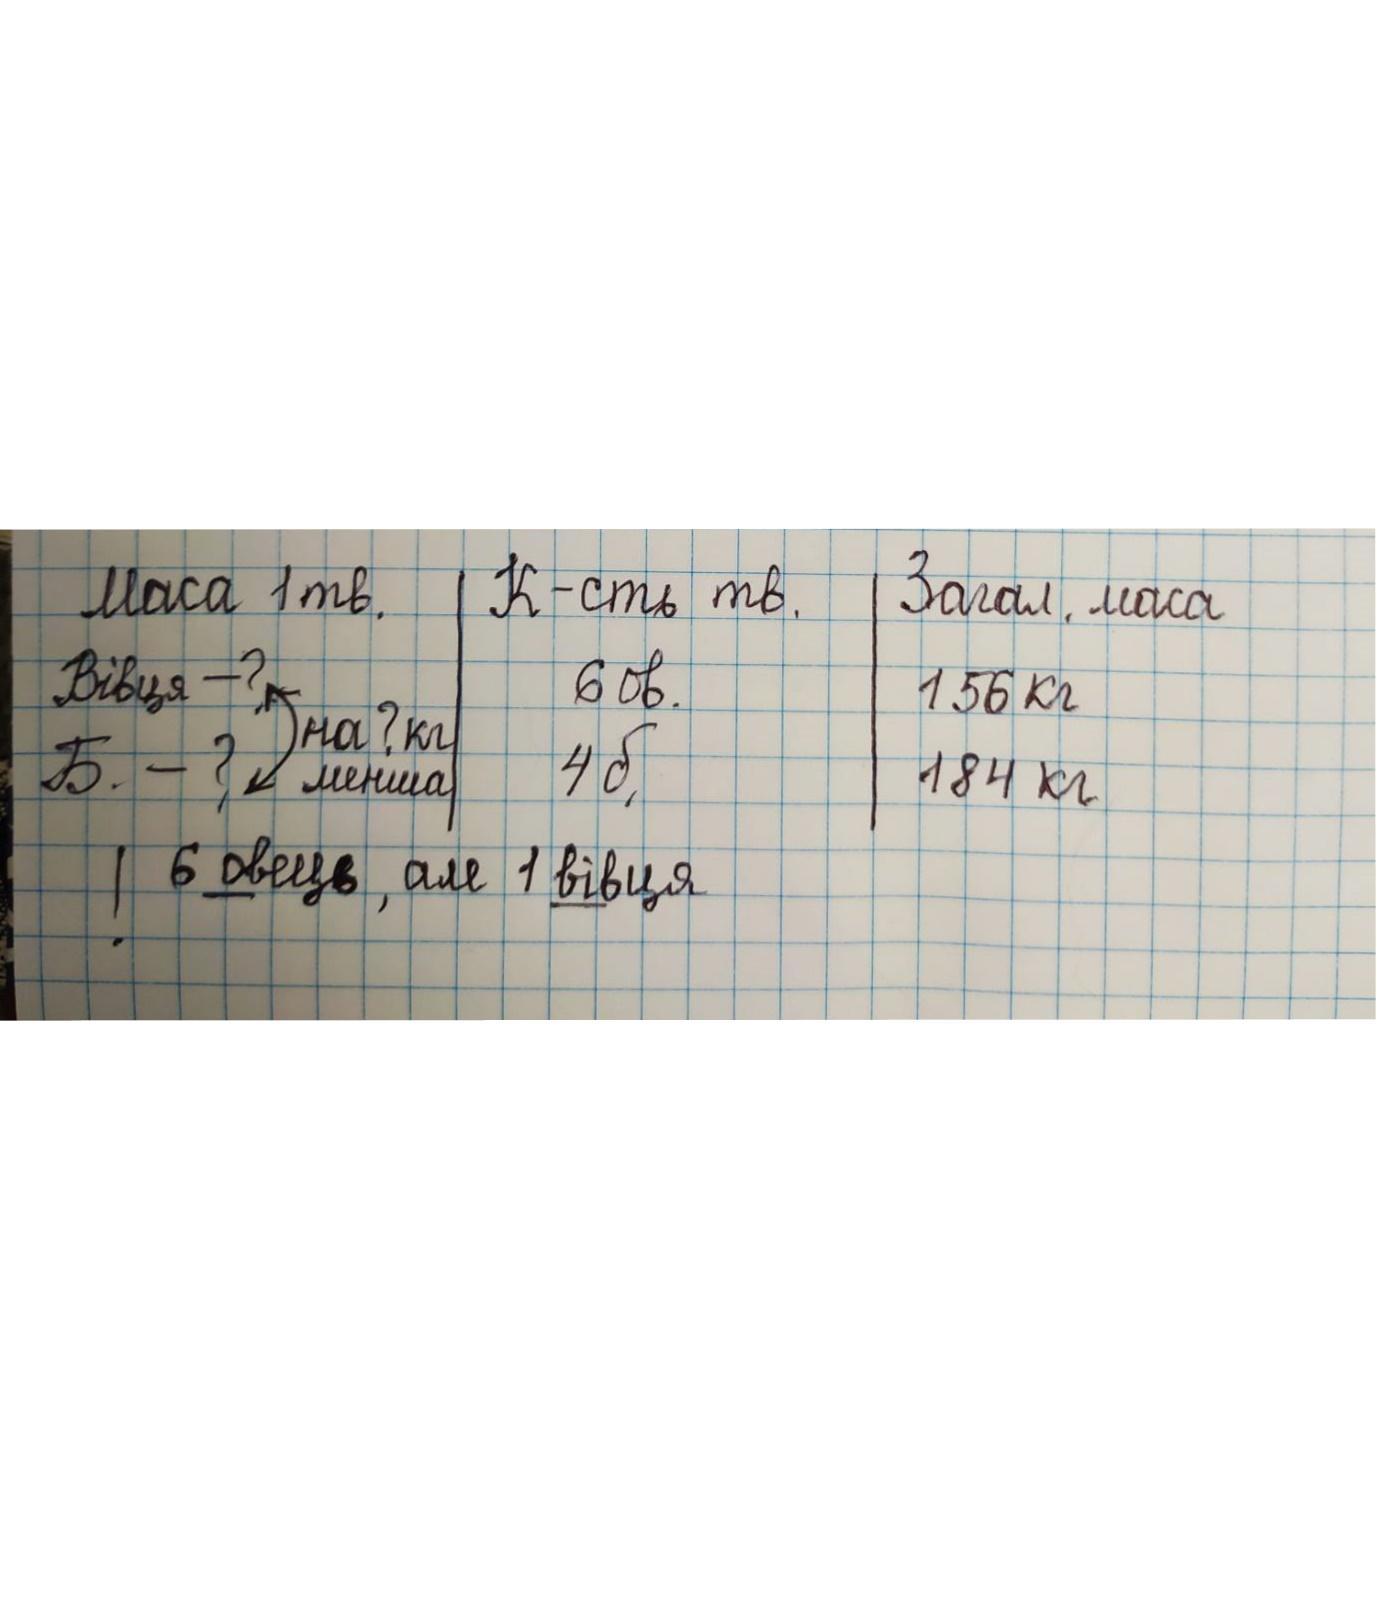 Маса 1 тв. К-сть тв. Загал. маса
Вівця - ? 6 ов. 156 кг
на ? кг
Б. - ? менша 4 б. 184 кг
! 6 овець, але 1 вівця